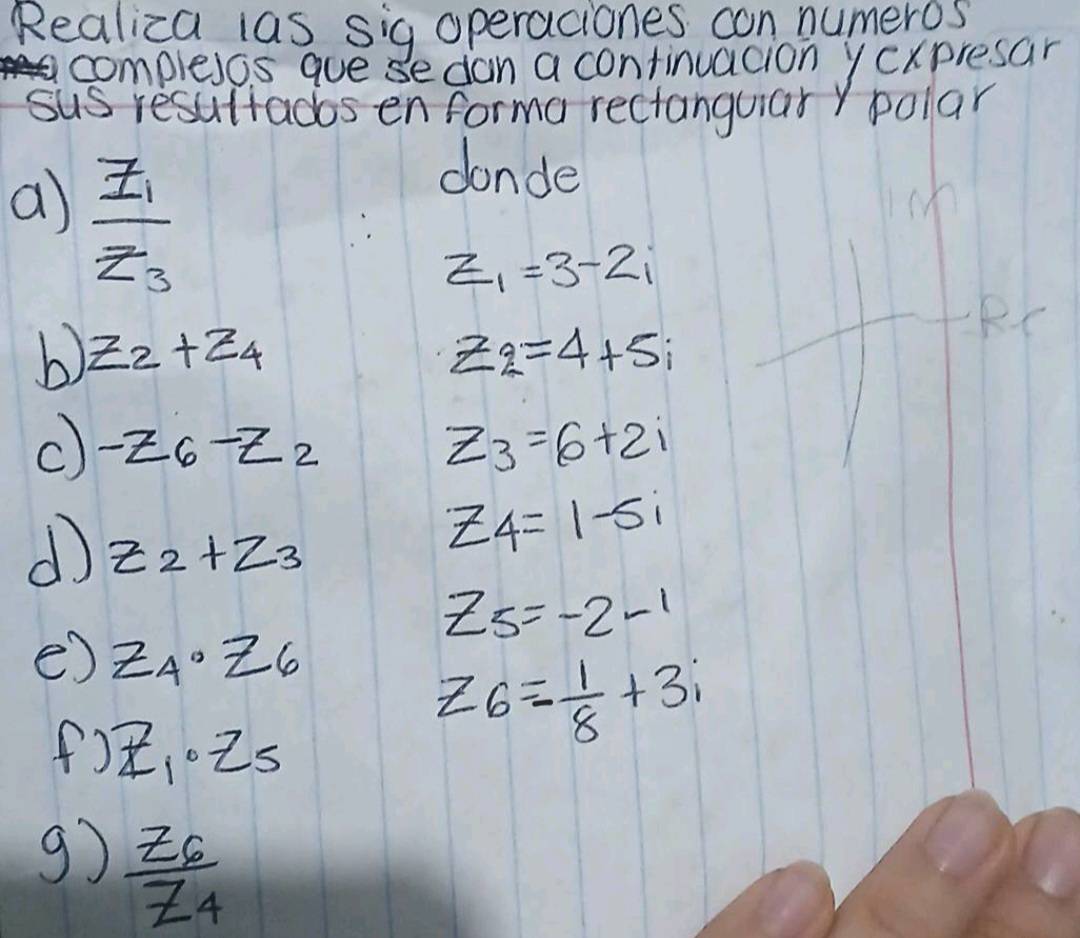 Realiza las sig operaciones con numeros
complejos que se dan a continuación y expresar
sus resultados en forma rectangular y polar
a) Z₁/Z₃
donde
Z₁ = 3-2i
b) Z₂ + Z₄
Z₂ = 4+5i
c) -Z₆ - Z₂
Z₃ = 6+2i
d) Z₂ + Z₃
Z₄ = 1-5i
e) Z₄ · Z₆
Z₅ = -2-i
f) Z₁ · Z₅
Z₆ = -1/8 + 3i
g) Z₆/Z₄
Im
Re